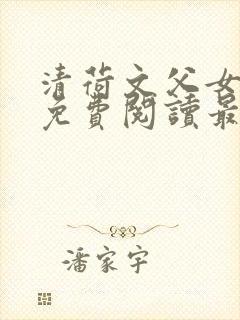 清荷文父女
免費閱讀最
潘家宇